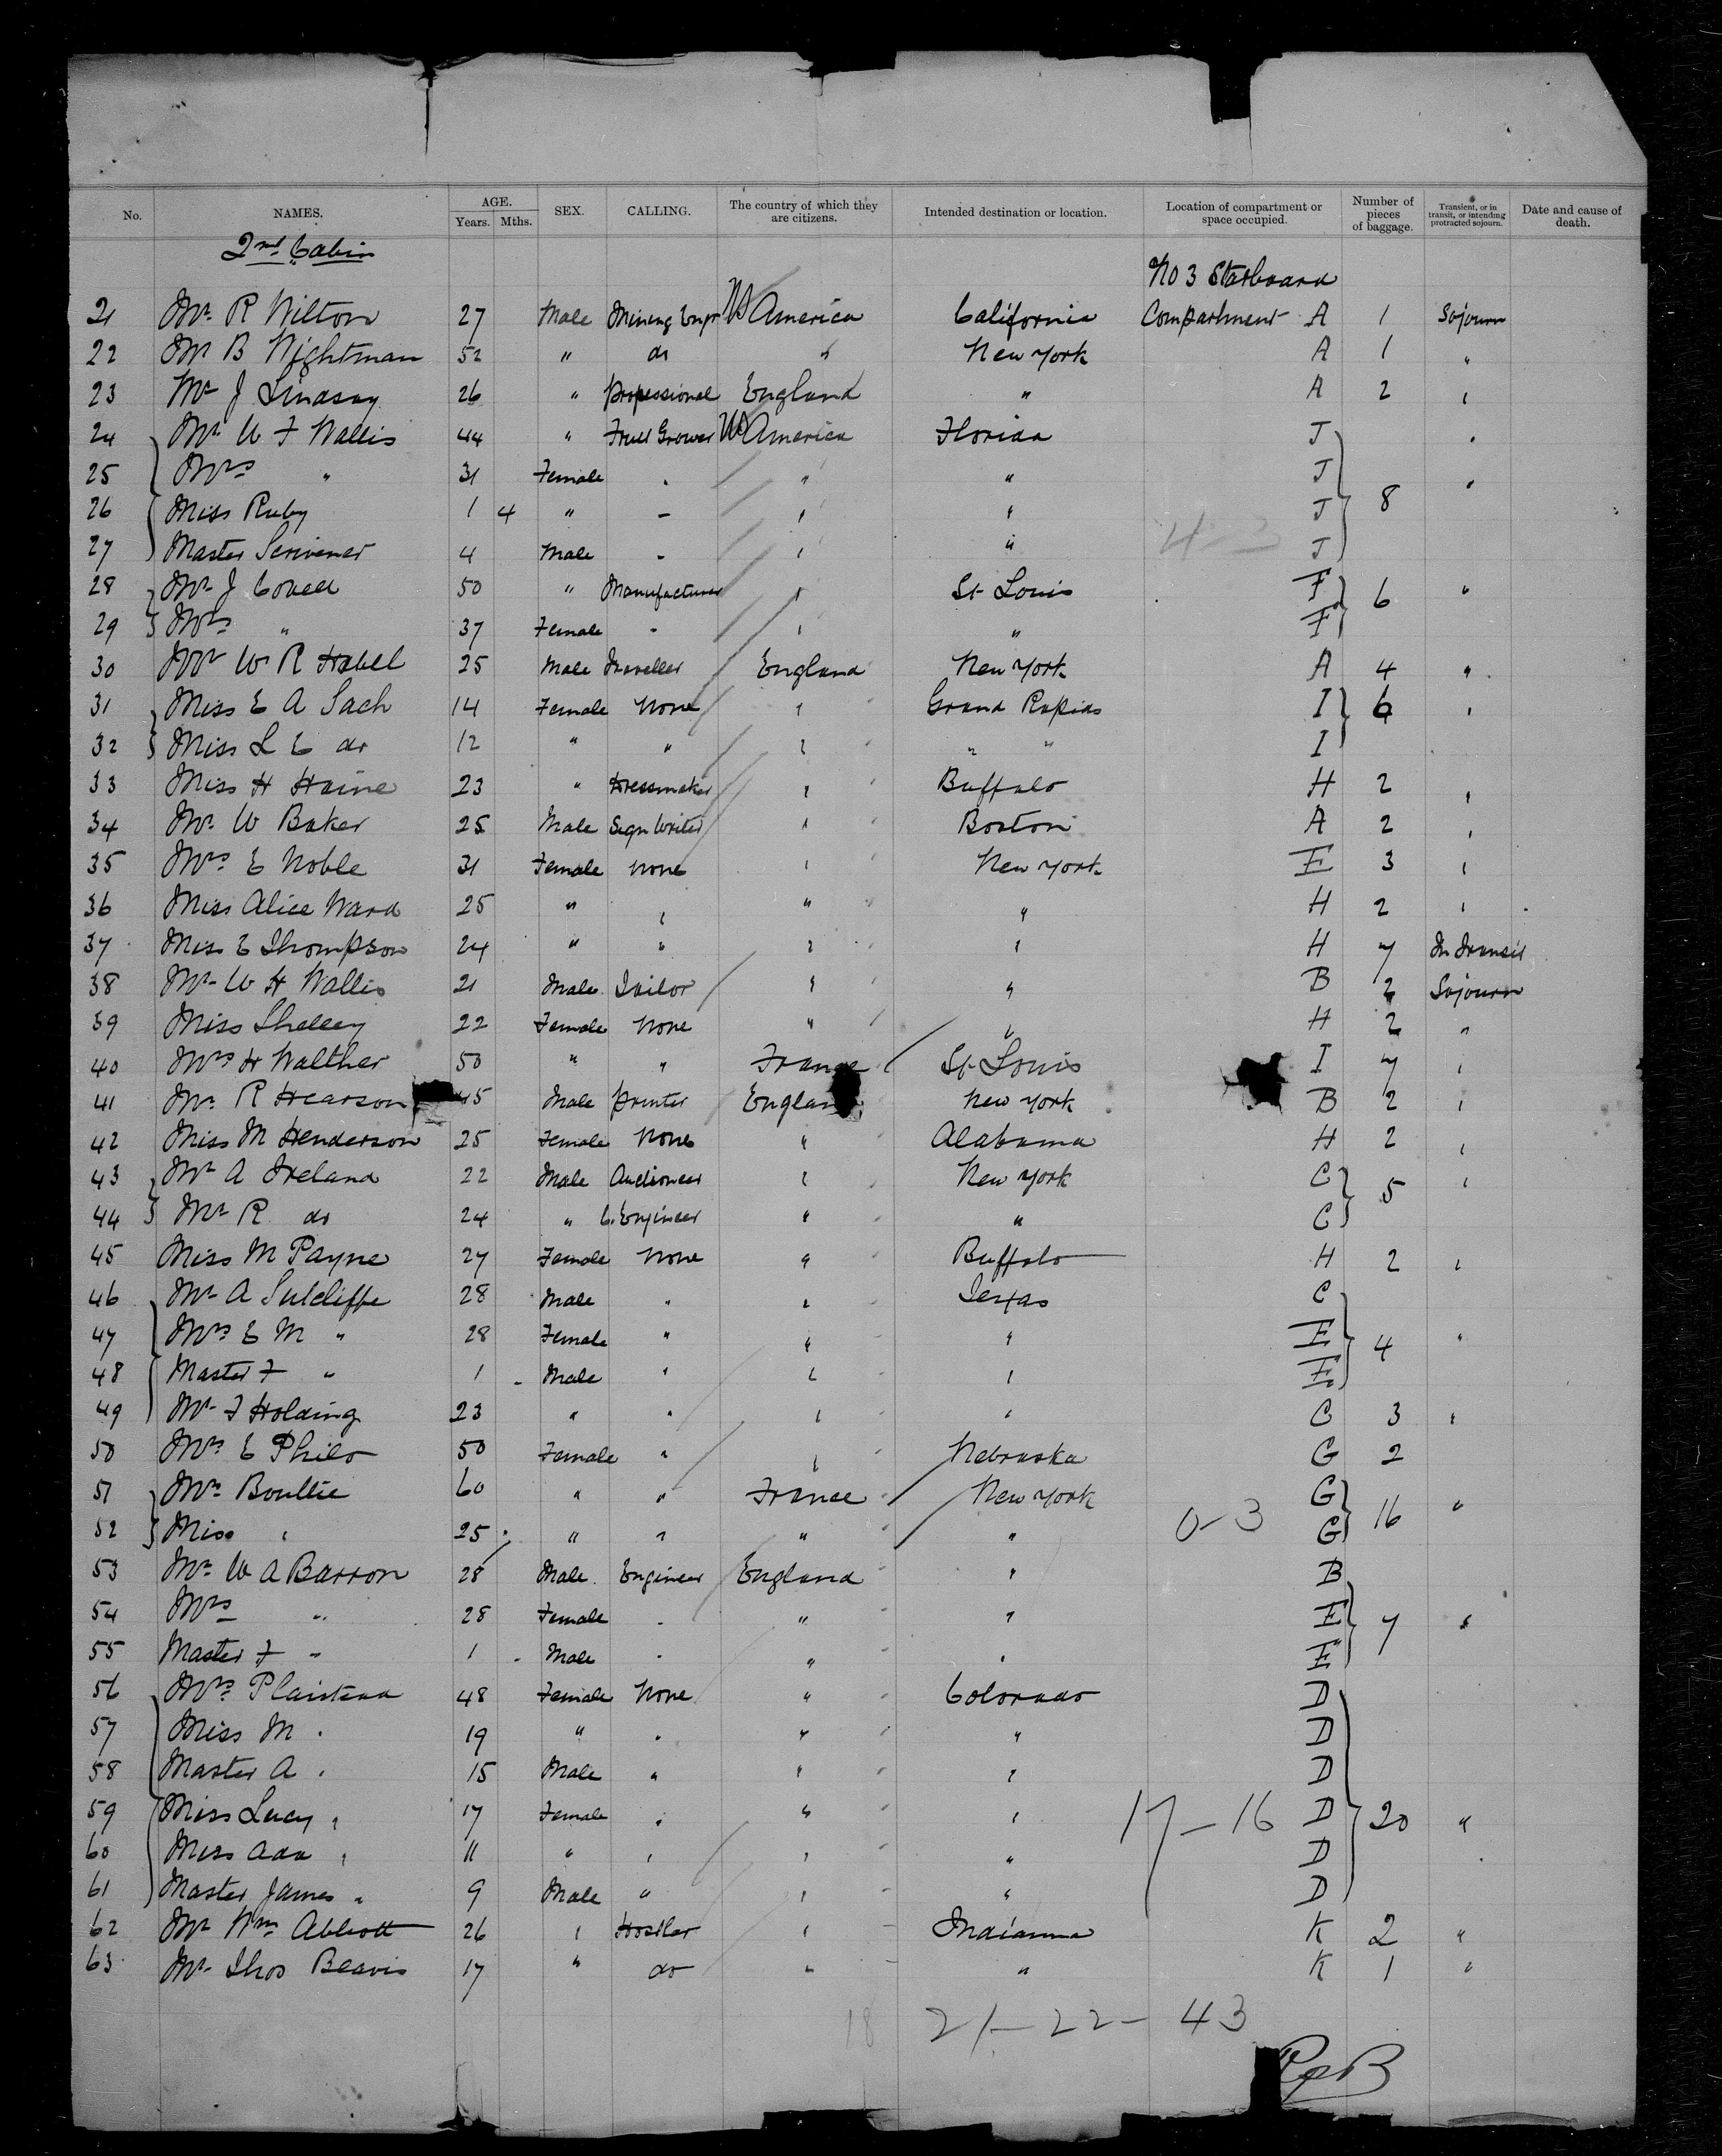 No. NAMES. AGE. Years. Mths. SEX. CALLING. The country of which they are citizens. Intended destination or location. Location of compartment or space occupied. Number of pieces of baggage. Transient, or in transit, or intending protracted sojourn. Date and cause of death.
2nd Cabin
No 3 Starboard
21 Mr R Wilton 27 Male Mining Engr US America California Compartment A 1 Sojourn
22 Mr B Wightman 52 " do " New York A 1 "
23 Mr J Lindsay 26 " Professional England " A 2 "
24 Mr W F Wallis 44 " Fruit Grower US America Florida J "
25 Mrs " 31 Female " " " J "
26 Miss Ruby 1 4 " - " " J 8
27 Master Scrivener 4 Male - " " J
28 Mr J Covell 50 " Manufacturer " St Louis F 6 "
29 Mrs " 37 Female - " " F
30 Mr W R Habel 25 Male Traveller England New York A 4 "
31 Miss E A Sach 14 Female None " Grand Rapids I 6 "
32 Miss L E do 12 " " " " " I
33 Miss H Haine 23 " Dressmaker " Buffalo H 2 "
34 Mr W Baker 25 Male Sign Writer " Boston A 2 "
35 Mrs E Noble 31 Female None " New York E 3 "
36 Miss Alice Ward 25 " " " " H 2 "
37 Miss E Thompson 24 " " " " H 7 In Transit
38 Mr W H Wallis 21 Male Tailor " " B 2 Sojourn
39 Miss Shelley 22 Female None " " H 2 "
40 Mrs H Walther 50 " " France St Louis I 7 "
41 Mr R Hearson 45 Male Printer England New York B 2 "
42 Miss M Henderson 25 Female None " Alabama H 2 "
43 Mr A Ireland 22 Male Auctioneer " New York C 5 "
44 Mr R do 24 " C. Engineer " " C
45 Miss M Payne 27 Female None " Buffalo H 2 "
46 Mr A Sutcliffe 28 Male " " Texas C
47 Mrs E M " 28 Female " " " E 4 "
48 Master F " 1 - Male " " " E
49 Mr F Holding 23 " " " " C 3 "
50 Mrs E Philo 50 Female " " Nebraska G 2
51 Mrs Boullie 60 " " France New York G 16 "
52 Miss " 25 " " " " G
0-3
53 Mr W A Barron 28 Male Engineer England " B
54 Mrs " 28 Female - " " E 7 "
55 Master F " 1 - Male - " " E
56 Mrs Plaistead 48 Female None " Colorado D
57 Miss M " 19 " " " " D
58 Master A " 15 Male " " " D
59 Miss Lucy " 17 Female " " " 17-16 D 20 "
60 Miss Ada " 11 " " " " D
61 Master James " 9 Male " " " D
62 Mr Wm Abbott 26 " Hostler " Indianna K 2 "
63 Mr Thos Beavis 17 " do " " K 1 "
18 21-22-43